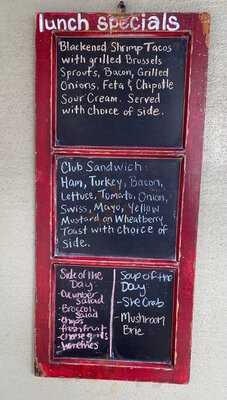 lunch specials
Blackened Shrimp Tacos
with grilled Brussels
Sprouts, Bacon, Grilled
Onions, Feta & Chipotle
Sour Cream. Served
with choice of side.
Club Sandwich:
Ham, Turkey, Bacon,
Lettuse, Tomato, Onion,
Swiss, Mayo, Yellow
Mustard on Wheatberry
Toast with choice of
side.
Side of the
Day
-Cucumber
Salad
-Broccoli
Salad
-Chips
-fresh fruit
-cheese grits
Soup of the
Day
-She Crab
-Mushroom
Brie